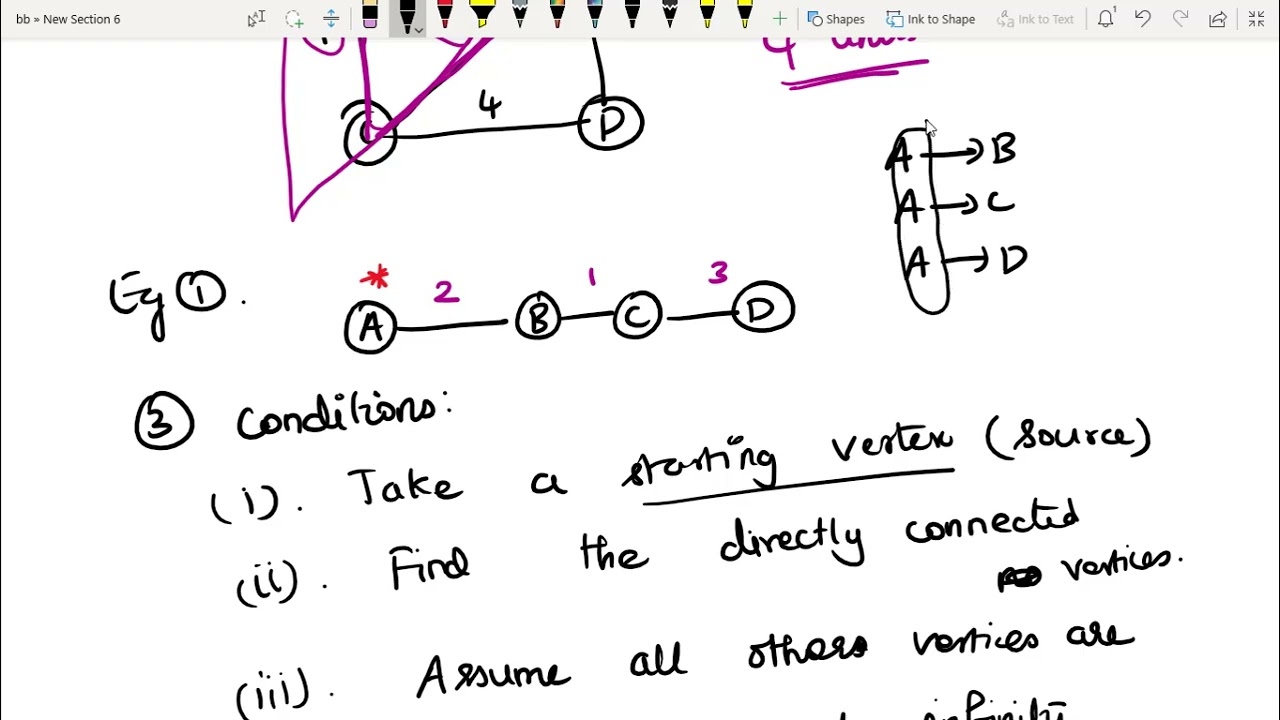 bb » New Section 6
Shapes
Ink to Shape
Ink to Text
4
4 D
A → B
A → C
A → D
Eg ① . * A 2 B 1 C 3 D
③ Conditions:
(i). Take a starting vertex (source)
(ii). Find the directly connected
vertices.
(iii). Assume all others vertices are
infinity